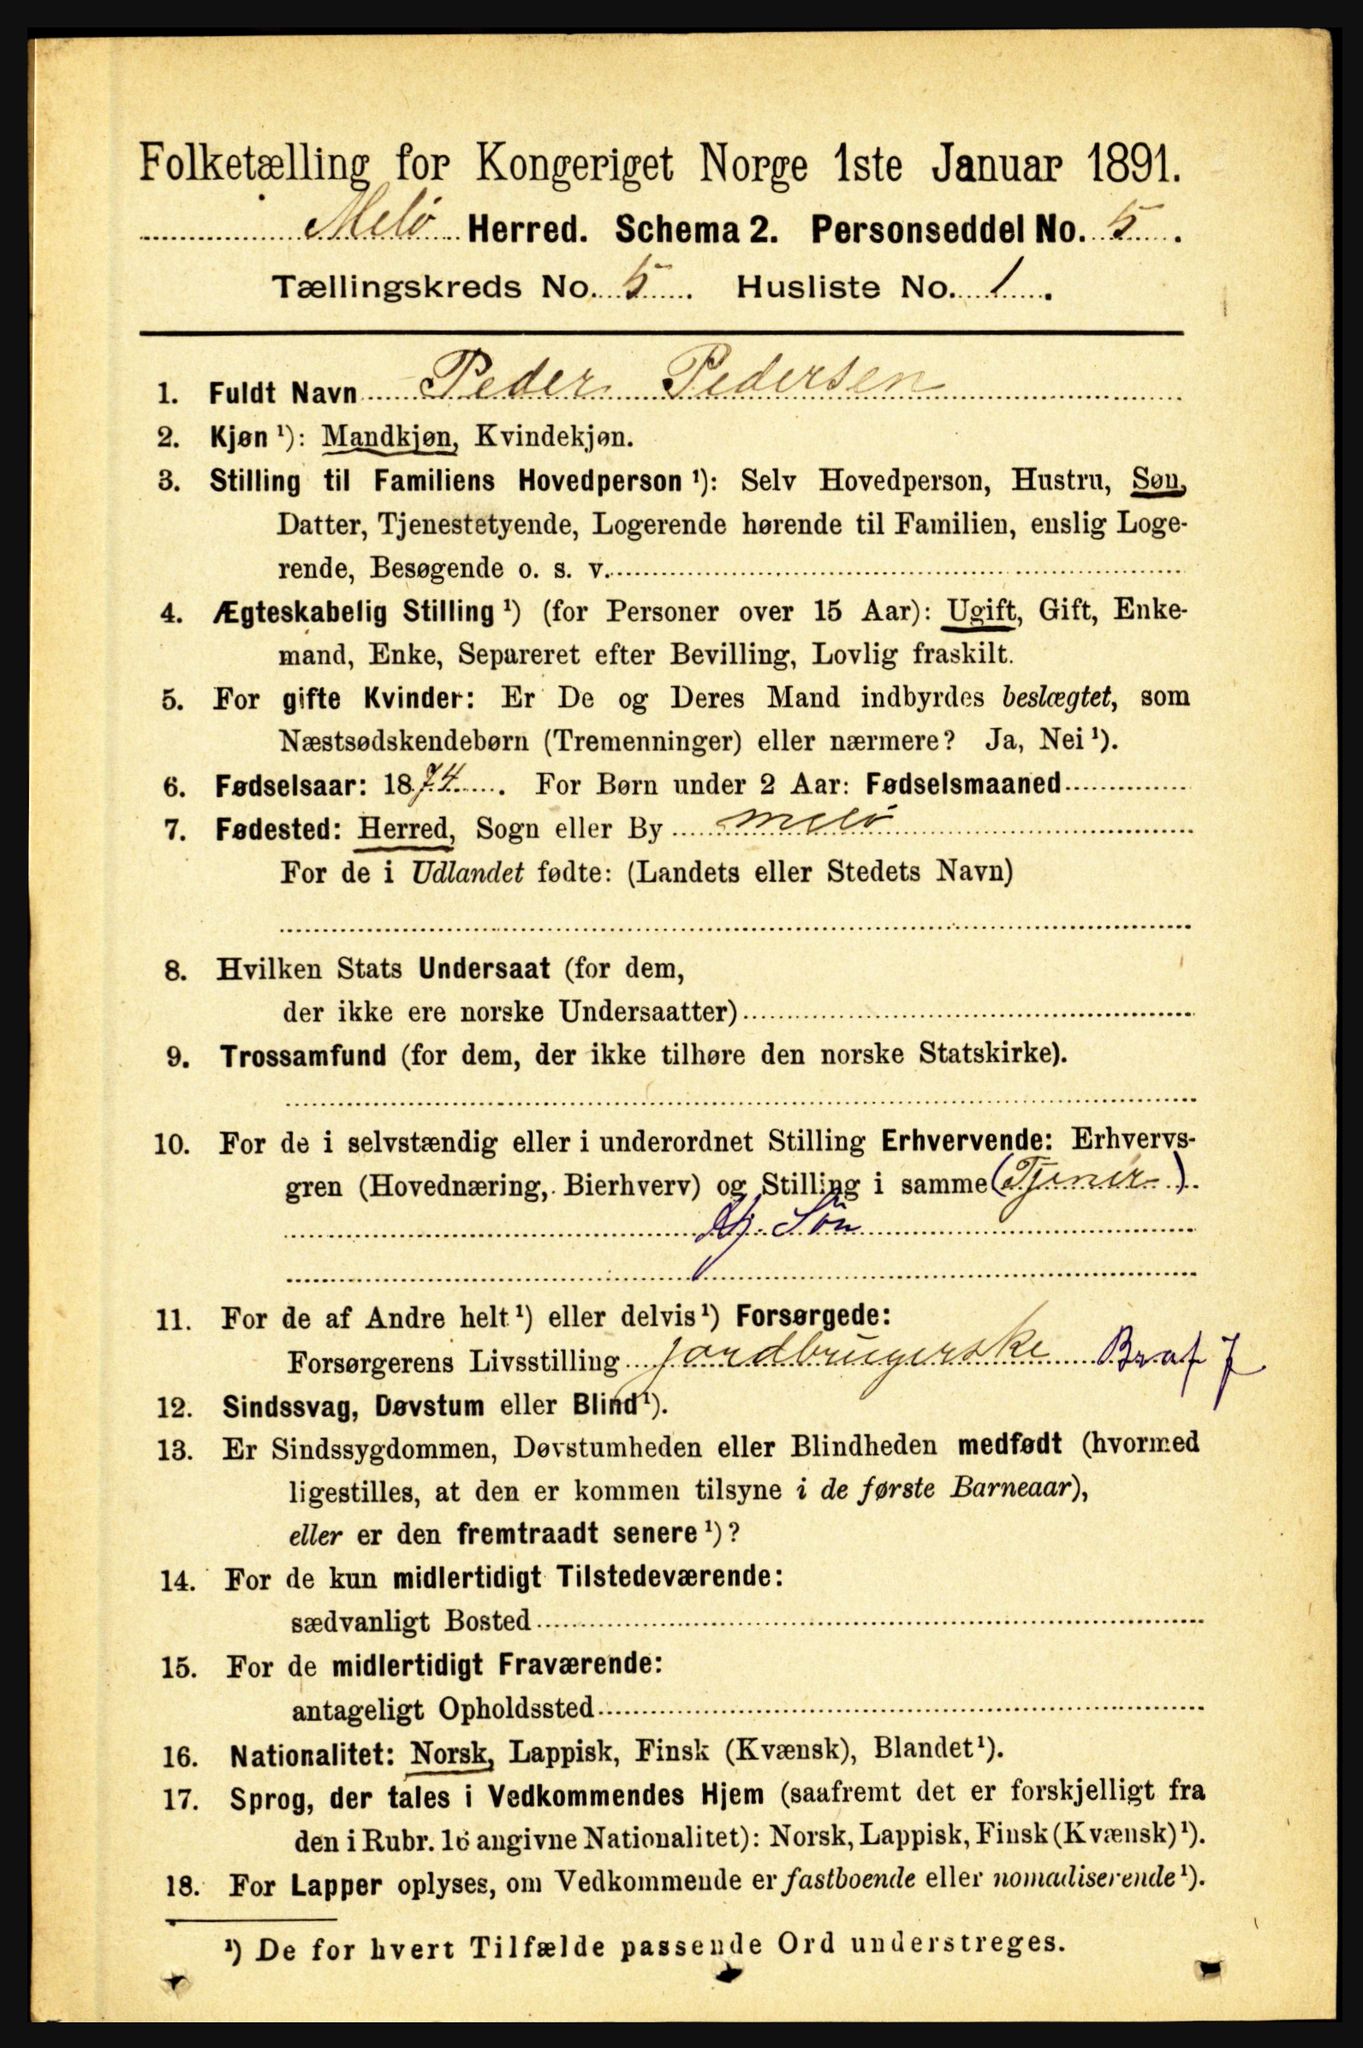 Folketælling for Kongeriget Norge 1ste Januar 1891.
Melø Herred. Schema 2. Personseddel No. 5.
Tællingskreds No. 5. Husliste No. 1.
1. Fuldt Navn Peder Pedersen
2. Kjøn ¹): Mandkjøn, Kvindekjøn.
3. Stilling til Familiens Hovedperson ¹): Selv Hovedperson, Hustru, Søn,
Datter, Tjenestetyende, Logerende hørende til Familien, enslig Loge-
rende, Besøgende o. s. v.
4. Ægteskabelig Stilling ¹) (for Personer over 15 Aar): Ugift, Gift, Enke-
mand, Enke, Separeret efter Bevilling, Lovlig fraskilt.
5. For gifte Kvinder: Er De og Deres Mand indbyrdes beslægtet, som
Næstsødskendebørn (Tremenninger) eller nærmere? Ja, Nei ¹).
6. Fødselsaar: 1874. For Børn under 2 Aar: Fødselsmaaned
7. Fødested: Herred, Sogn eller By Melø
For de i Udlandet fødte: (Landets eller Stedets Navn)
8. Hvilken Stats Undersaat (for dem,
der ikke ere norske Undersaatter)
9. Trossamfund (for dem, der ikke tilhøre den norske Statskirke).
10. For de i selvstændig eller i underordnet Stilling Erhvervende: Erhvervs-
gren (Hovednæring, Bierhverv) og Stilling i samme (Tjener)
Søn
11. For de af Andre helt ¹) eller delvis ¹) Forsørgede:
Forsørgerens Livsstilling jordbrugerske Braf J
12. Sindssvag, Døvstum eller Blind ¹).
13. Er Sindssygdommen, Døvstumheden eller Blindheden medfødt (hvormed
ligestilles, at den er kommen tilsyne i de første Barneaar),
eller er den fremtraadt senere ¹)?
14. For de kun midlertidigt Tilstedeværende:
sædvanligt Bosted
15. For de midlertidigt Fraværende:
antageligt Opholdssted
16. Nationalitet: Norsk, Lappisk, Finsk (Kvænsk), Blandet ¹).
17. Sprog, der tales i Vedkommendes Hjem (saafremt det er forskjelligt fra
den i Rubr. 16 angivne Nationalitet): Norsk, Lappisk, Finsk (Kvænsk) ¹).
18. For Lapper oplyses, om Vedkommende er fastboende eller nomadiserende ¹).
¹) De for hvert Tilfælde passende Ord understreges.